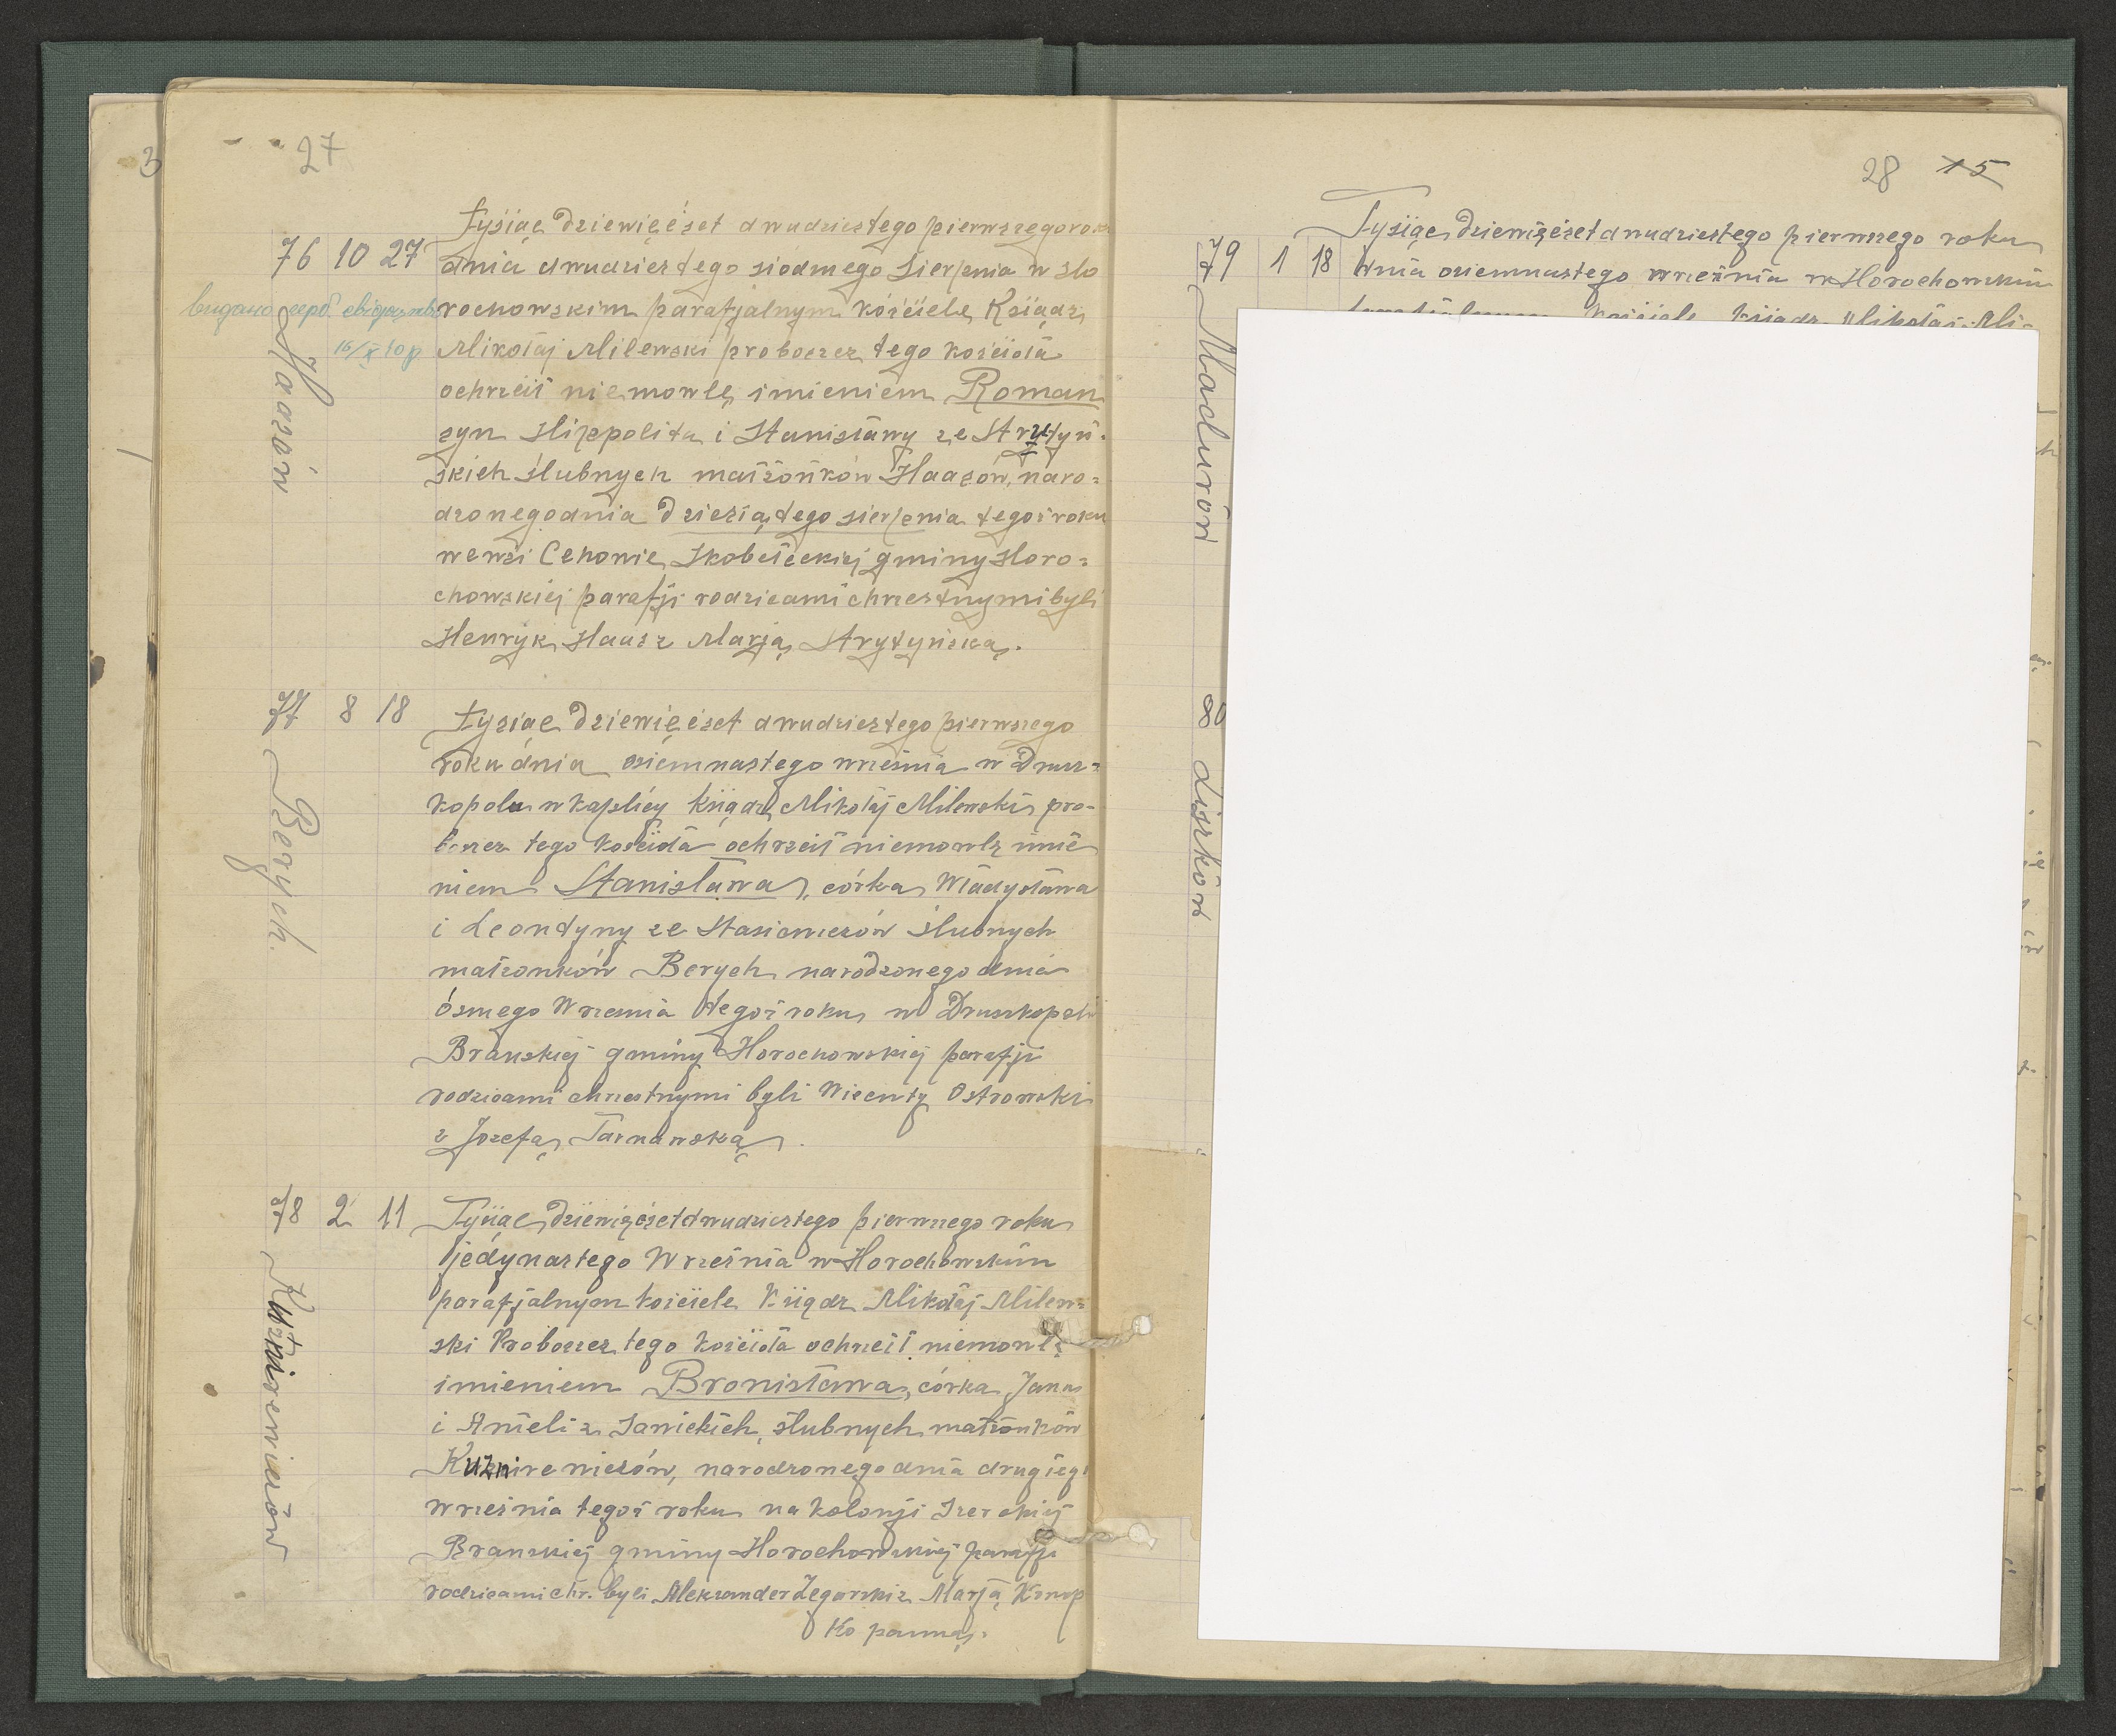 27
tysiąc dziewięćset dwudziestego pierwszego roku
76 10 27 dnia dwudziestego siódmego Sierpnia w Ho
rochowskim parafjalnym kościele Ksiądz
16/X 40 р Mikołaj Milewski proboszcz tego kościoła
ochrzcił niemowlę imieniem Roman
syn Hippolita i Stanisławy ze Strytyń-
skich ślubnych małżonków Haazów, naro=
dzonego dnia dziesiątego sierpnia tegoż roku
we wsi Cehowie, Skobełeckiej gminy Horo=
chowskiej parafji rodzicami chrzestnymi byli
Henryk Haas z Marją Strytyńską.
Haazów
77 8 18 tysiąc dziewięćset dwudziestego pierwszego
roku dnia osiemnastego września w Drusz=
kopolu w kaplicy ksiądz Mikołaj Milewski pro-
boszcz tego kościoła ochrzcił niemowlę imie
niem Stanisława, córka Władysława
i Leontyny ze Stasiewiczów ślubnych
małżonków Berych narodzonego dnia
ósmego Września tegoż roku w Druszkopolu
Brańskiej gminy Horochowskiej parafji
rodzicami chrzestnymi byli Wicenty Ostrowski
z Józefą Tarnawską.
Berych.
78 2 11 Tysiąc dziewięćset dwudziestego pierwszego roku
jedynastego Września w Horochowskim
parafjalnym kościele Ksiądz Mikołaj Milew=
ski Proboszcz tego kościoła ochrzcił niemowlę
imieniem Bronisława, córka Jana
i Anieli z Sawickich, ślubnych małżonków
Kuznirewiczów, narodzonego dnia drugiego
września tegoż roku na kolonji
Brańskiej gminy Horochowskiej parafji
rodzicami chr. byli Aleksander Żegarski z Marją Knop
ko panną.
Kuznirewiczów
28 15
Tysiąc dziewięćset dwudziestego pierwszego roku
79 1 18 dnia osiemnastego września w Horochowskim
parafjalnym kościele ksiądz Mikołaj Mi-
Madurów
80 Liszków